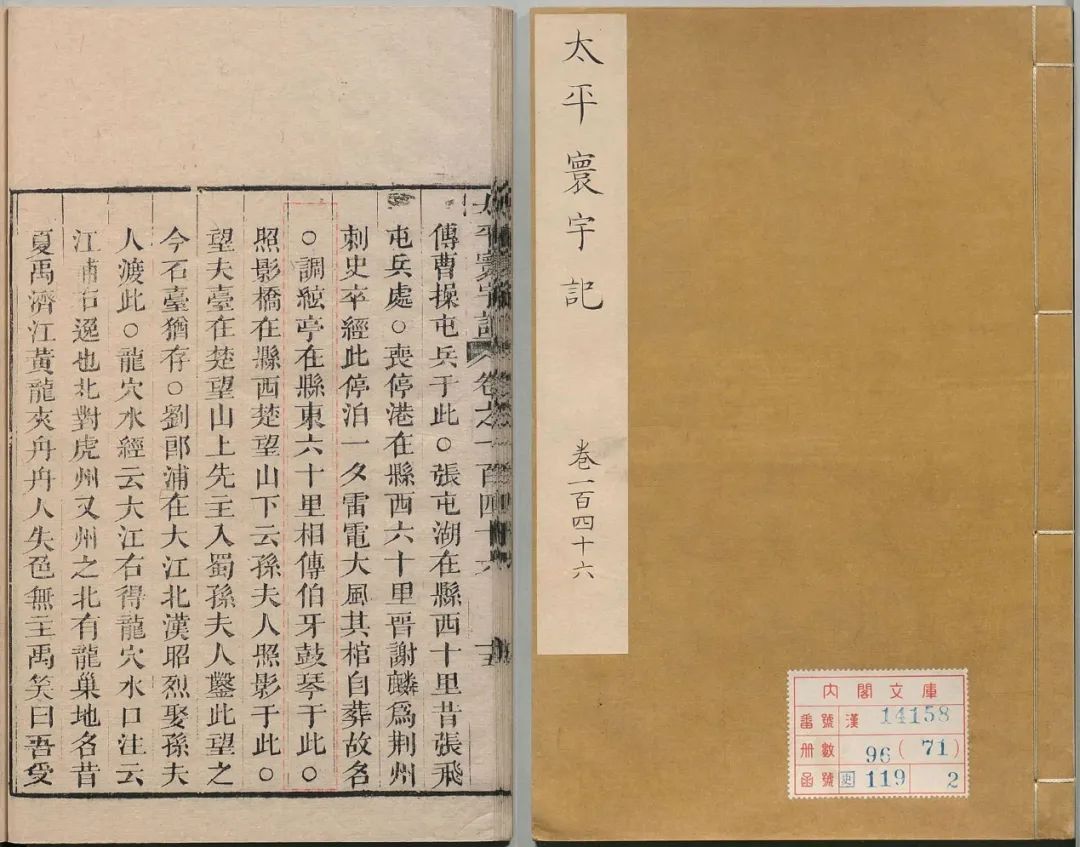 太平寰宇記 卷之一百四十六 十五
傳曹操屯兵于此○張屯湖在縣西十里昔張飛
屯兵處○喪停港在縣西六十里晉謝麟爲荆州
刺史卒經此停泊一夕雷電大風其棺自葬故名
○調絃亭在縣東六十里相傳伯牙鼓琴于此○
照影橋在縣西楚望山下云孫夫人照影于此○
望夫臺在楚望山上先主入蜀孫夫人鑿此望之
今石臺猶存○劉郎浦在大江北漢昭烈娶孫夫
人渡此○龍穴水經云大江右得龍穴水口注云
江浦右迤也北對虎州又州之北有龍巢地名昔
夏禹濟江黃龍夾舟舟人失色無主禹笑曰吾受
太平寰宇記
卷一百四十六
內閣文庫
番號 漢 14158
冊數 96(71)
函號 史 119 2